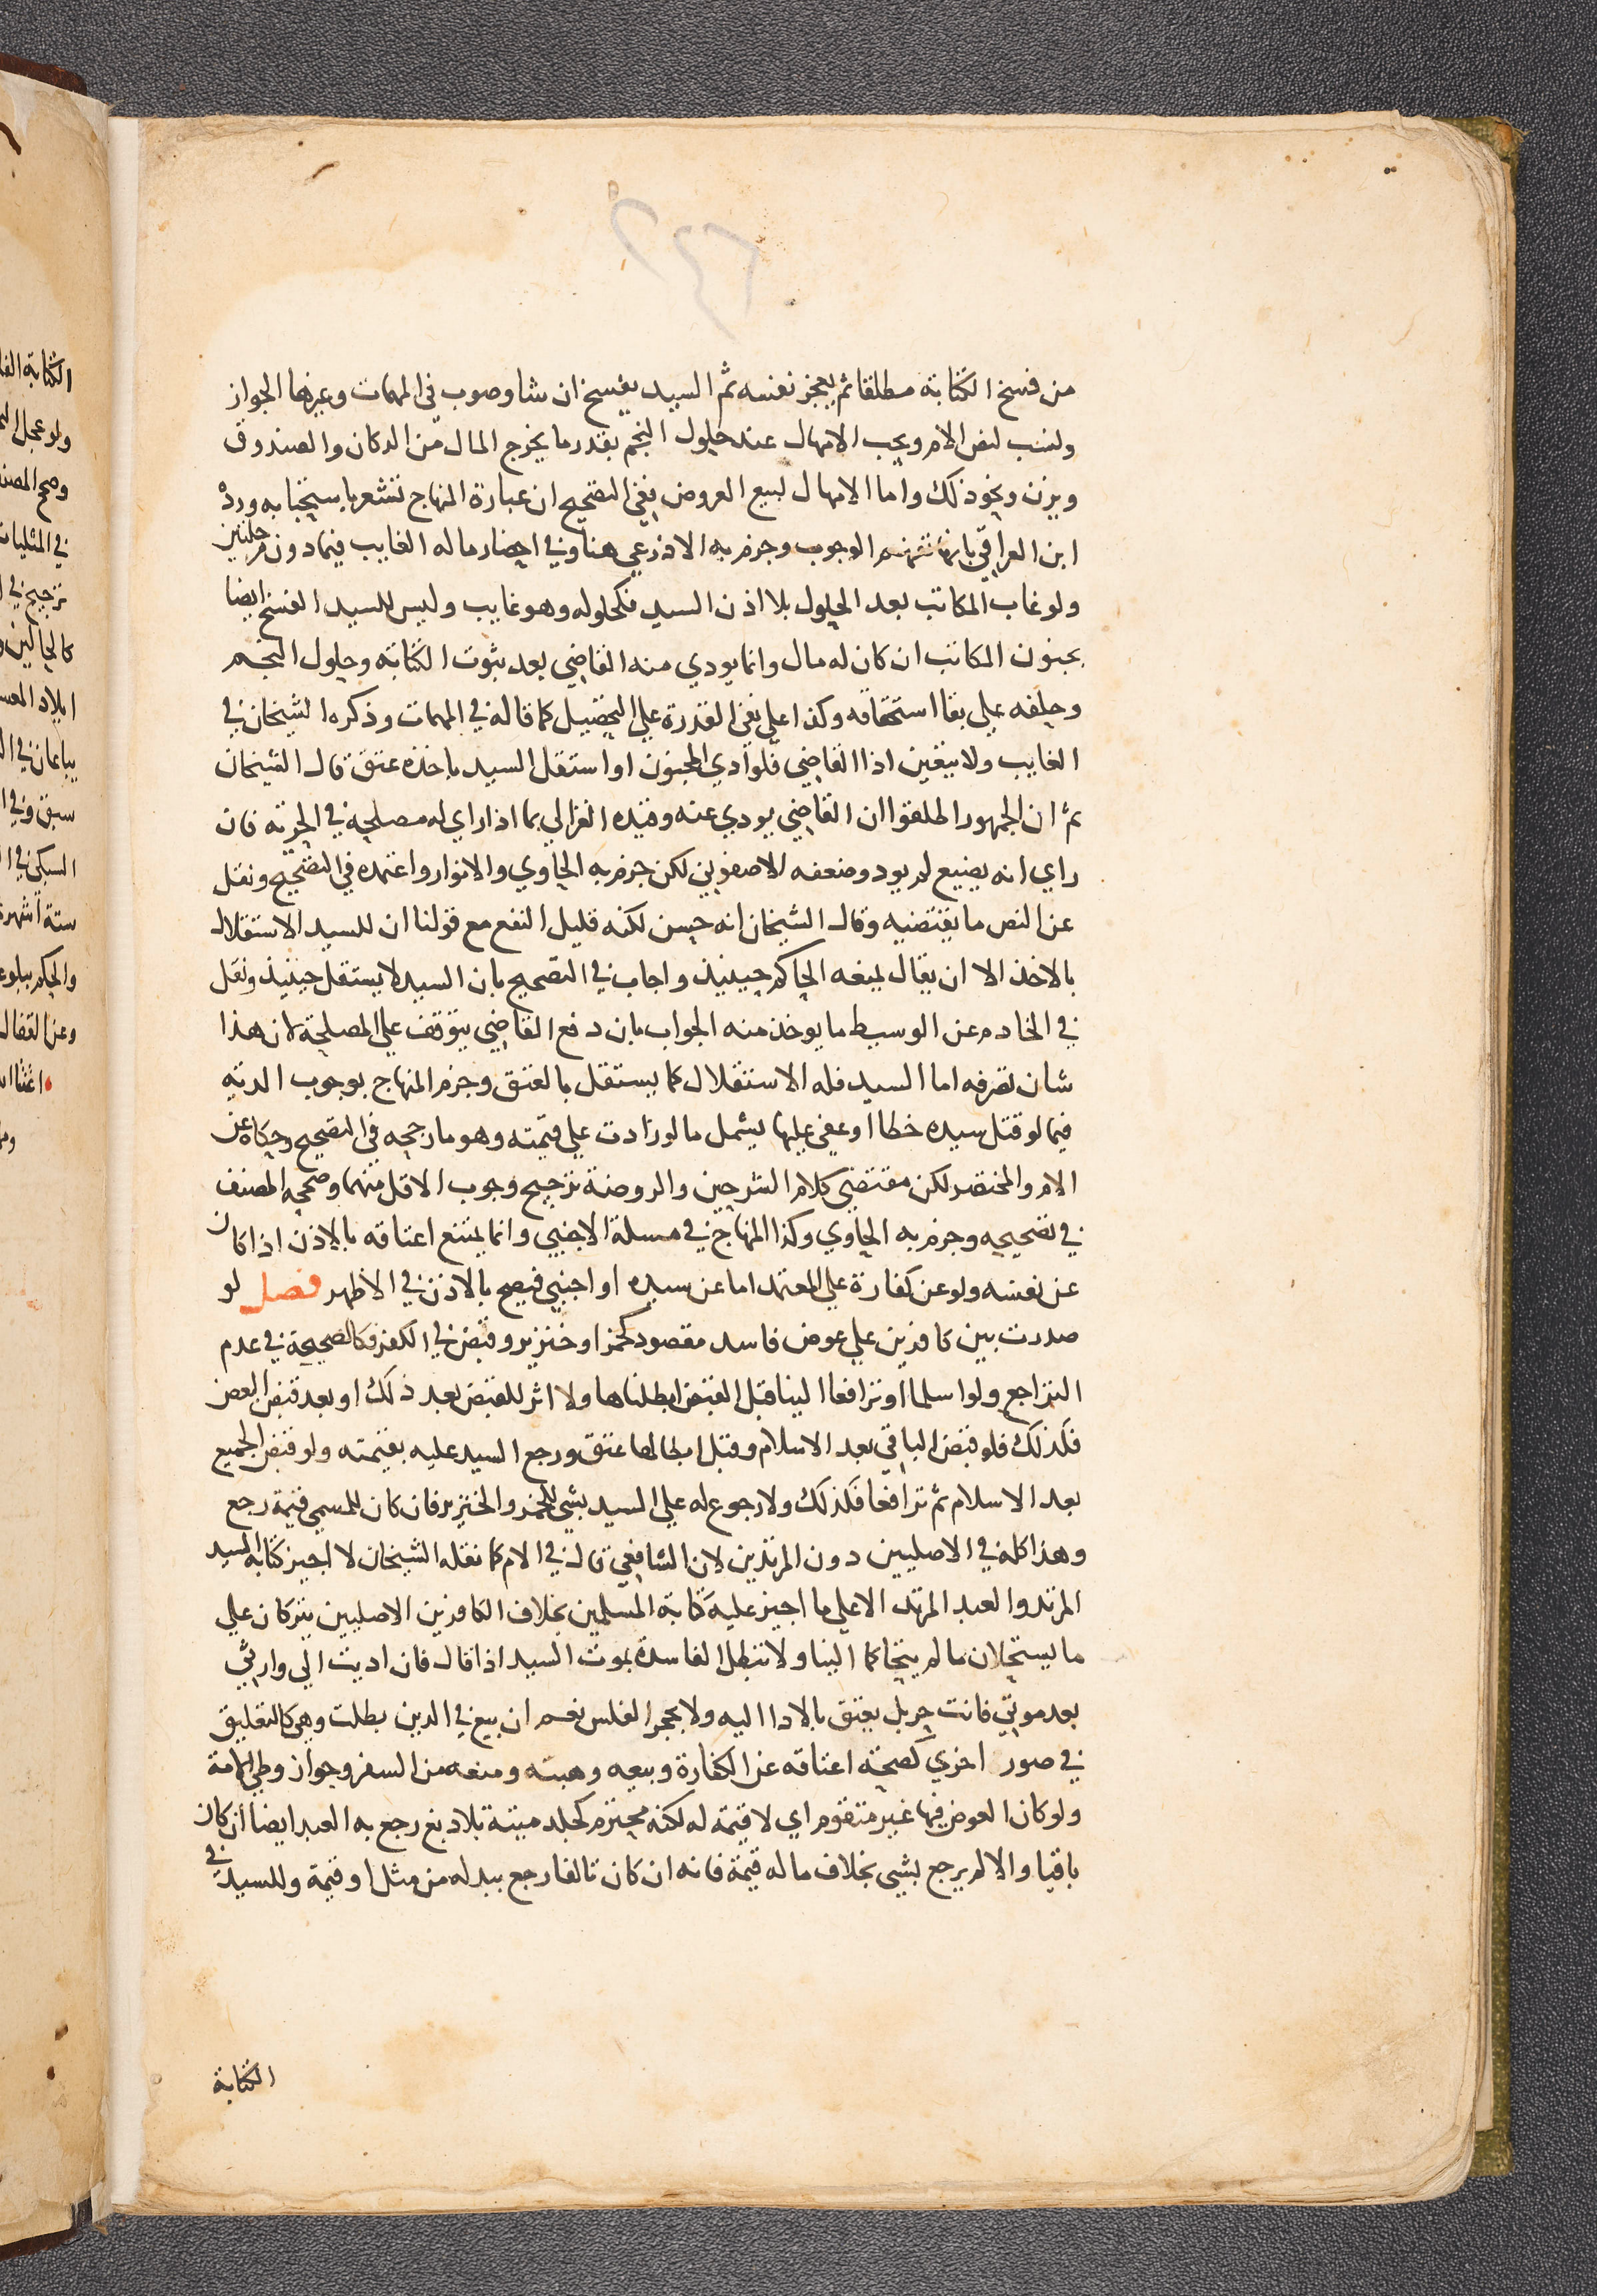 من فسخ الكتابة مطلقا ثم يعجز نفسه ثم السيد يفسخ ان شا وصوب في المهمات وغيرها الجواز
ونسب لنص الام ويجب الامهال عند حلول النجم بقدر ما يخرج المال من الدكان والصندوق
ويزن ونحو ذلك واما الامهال لبيع العروض ففي التصحيح ان عبارة المنهاج تشعر باستحبابه ورد
ابن العراقي بانها تفهم الوجوب وجزم به الاذرعي هنا وفي احضار ماله الغايب فيما دون مرحلتين
ولو غاب المكاتب بعد الحلول بلا اذن السيد فكحلوله وهو غايب وليس للسيد الفسخ ايضا
بجنون المكاتب ان كان له مال وانما يودي منه القاضي بعد ثبوت الكتابة وحلول النجم
وحلفه علي بقا استحقاقه وكذا علي نفي القدرة علي التحصيل كما قاله في المهمات وذكره الشيخان في
الغايب ولا يتعين اذا القاضي فلو ادي المجنون او استقل السيد باخذه عتق قال الشيخان
ثم ان الجمهور اطلقوا ان القاضي يودي عنه وقيده الغزالي بما اذا راي له مصلحة في الحرية فان
راي انه يضيع لم يود وضعفه الاصفوني لكن جزم به الحاوي والانوار واعتمده في التصحيح ونقل
عن النص ما يقتضيه وقال الشيخان انه حسن لكنه قليل النفع مع قولنا ان للسيد الاستقلال
بالاخذ الا ان يقال يمنعه الحاكم حينيذ واجاب في التصحيح بان السيد لا يستقل حينيذ ونقل
في الخادم عن الوسيط ما يوخذ منه الجواب بان دفع القاضي يتوقف علي المصلحة لان هذا
شان تصرفه اما السيد فله الاستقلال كما يستقل بالعتق وجزم المنهاج بوجوب الدية
فيما لو قتل سيده خطا او عفي عليها يشمل ما لو زادت علي قيمته وهو ما رجحه في التصحيح وحكاه عن
الام والمختصر لكن مقتضي كلام الشرحين والروضة ترجيح وجوب الاقل منهما وصححه المصنف
في تصحيحه وجزم به الحاوي وكذا المنهاج في مسلة الاجنبي وانما يمتنع اعتاقه بالاذن اذا كان
عن نفسه ولو عن كفارة علي المعتمد اما عن سيده او اجنبي فيصح بالاذن في الاظهر فصل لو
صدرت بين كافرين علي عوض فاسد مقصود كخمر او خنزير وقبض في الكفر فكالصحيحة في عدم
التراجع ولو اسلما او ترافعا الينا قبل القبض ابطلناها ولا اثر للقبض بعد ذلك او بعد قبض البعض
فكذلك فلو قبض الباقي بعد الاسلام وقبل ابطالها عتق ورجع السيد عليه بقيمته ولو قبض الجميع
بعد الاسلام ثم ترافعا فكذلك ولا رجوع له علي السيد بشي للخمر والخنزير فان كان للمسمي قيمة رجع
وهذا كله في الاصليين دون المرتدين لان الشافعي قال في الام كما نقله الشيخان لا اجيز كتابة السيد
المرتد والعبد المرتد الا علي ما اجيز عليه كتابة المسلمين بخلاف الكافرين الاصليين يتركان علي
ما يستحلان ما لم يتحاكما الينا ولا تبطل الفاسدة بموت السيد اذا قال فان اديت الي وارثي
بعد موتي فانت حر بل يعتق بالادا اليه ولا بحجر الفلس نعم ان بيع في الدين بطلت وهي كالتعليق
في صور اخري كصحة اعتاقه عن الكفارة وبيعه وهبته ومنعه من السفر وجواز وطي الامة
ولو كان العوض فيها غير متقوم اي لا قيمة له لكنه محترم كجلد ميتة بلا دبغ رجع به العبد ايضا ان كان
باقيا والا لم يرجع بشي بخلاف ما له قيمة فانه ان كان تالفا رجع ببدله من مثل او قيمة وللسيد في
الكتابة